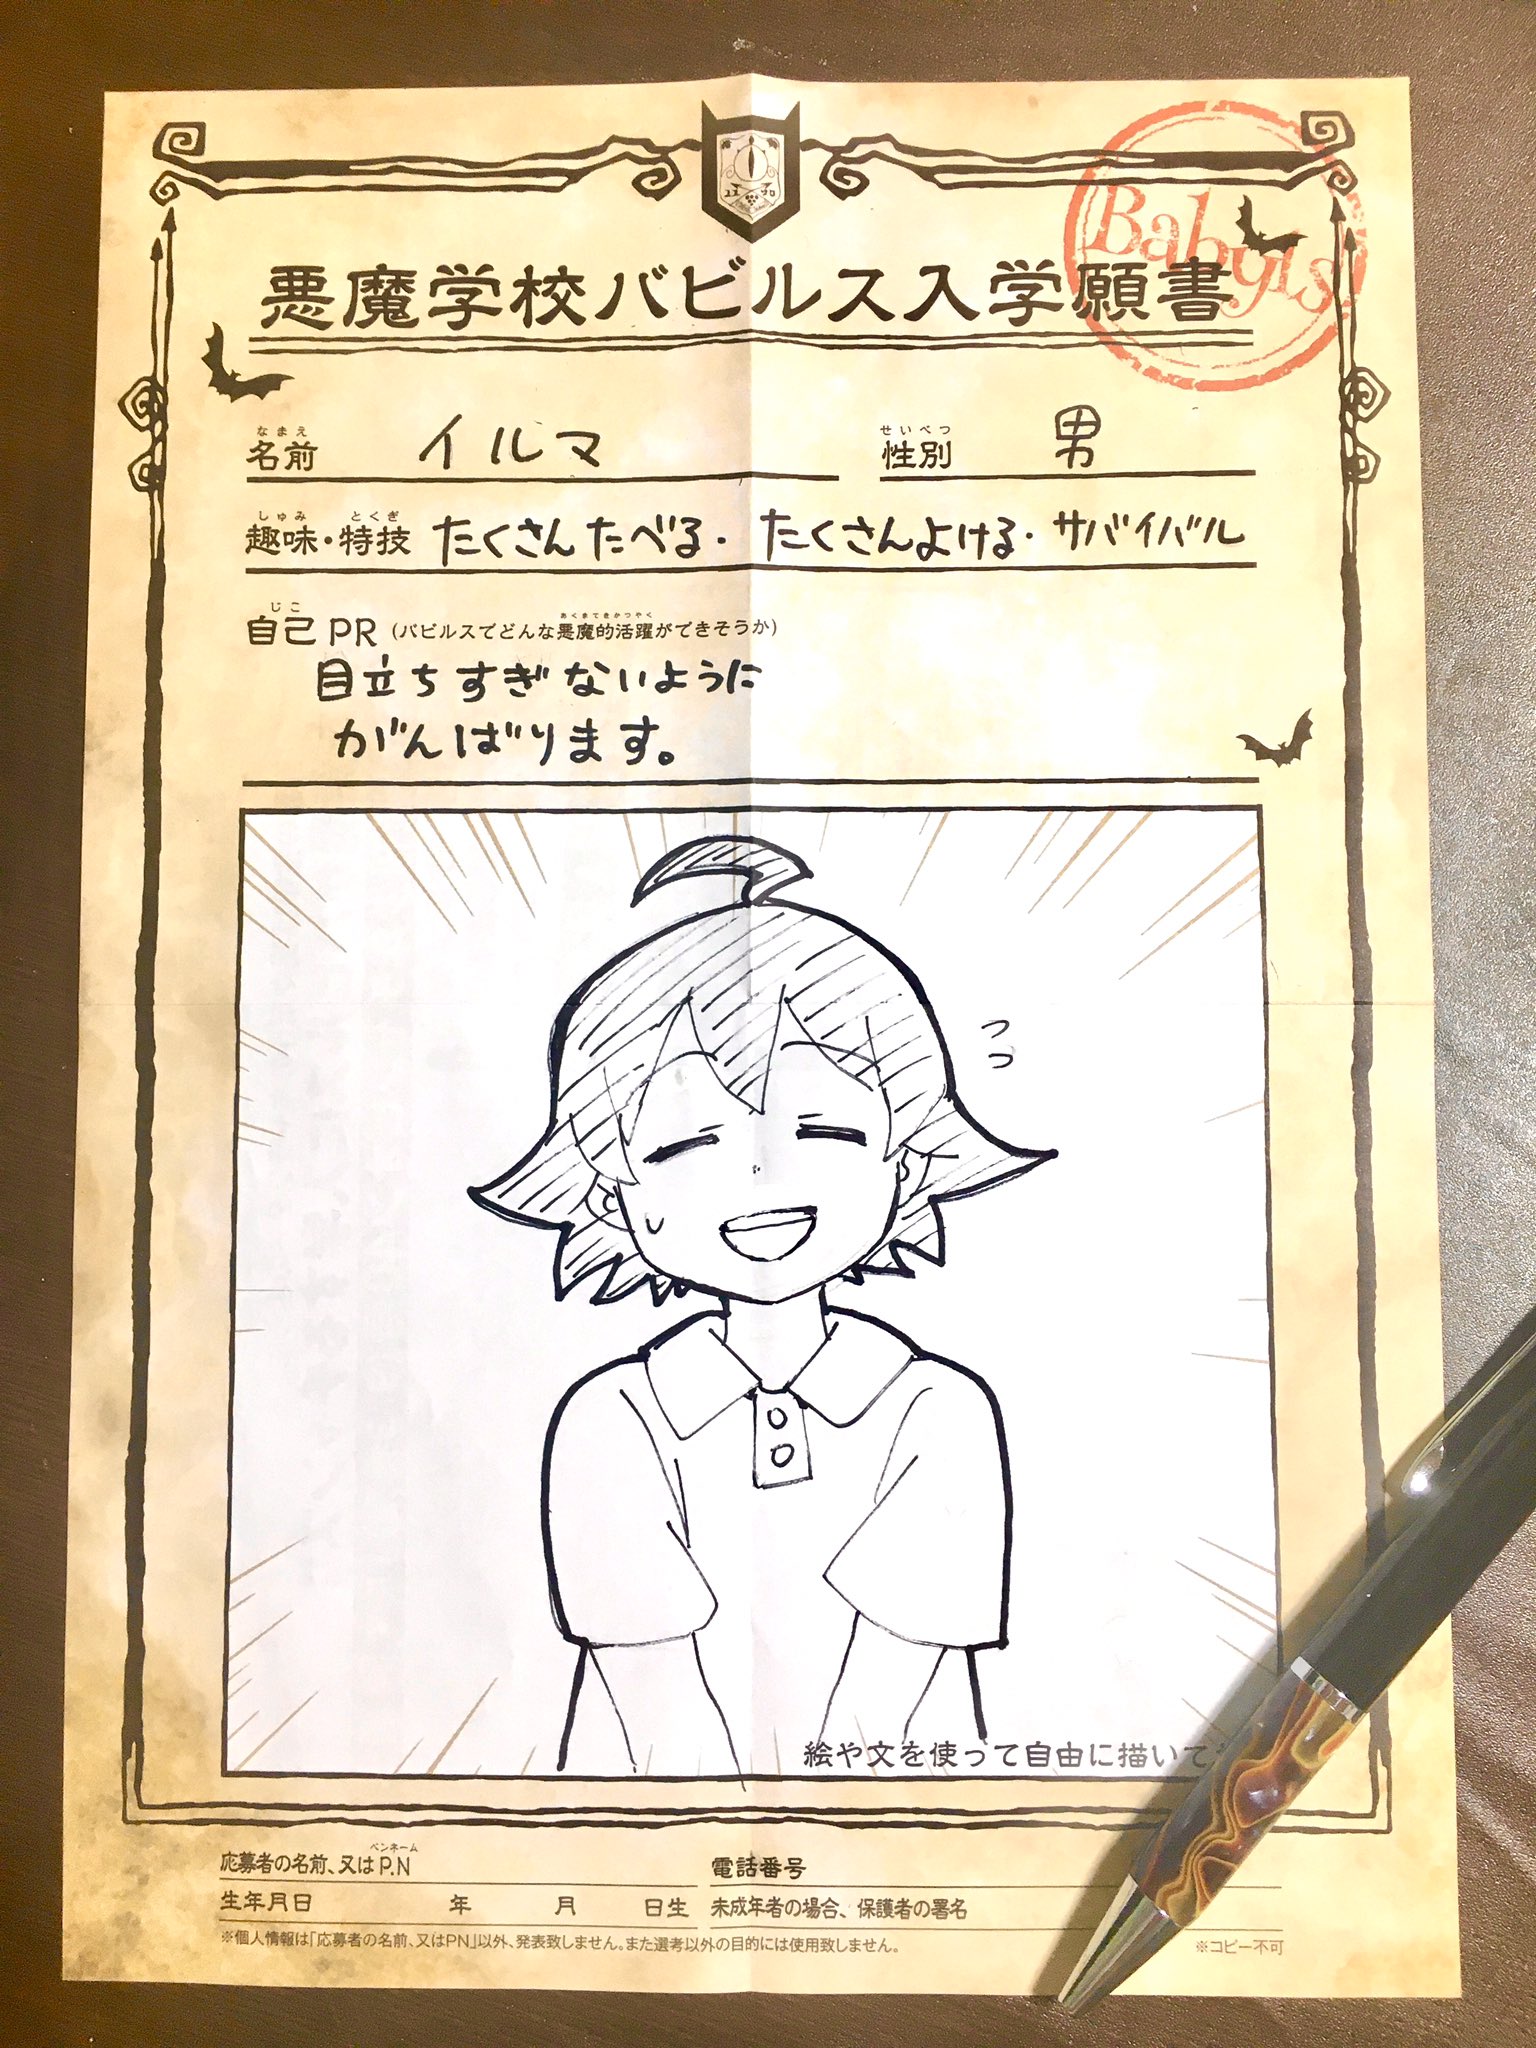 Babyls
悪魔学校バビルス入学願書
なまえ
名前 イルマ
せいべつ
性別 男
しゅみ とくぎ
趣味・特技 たくさんたべる・たくさんよける・サバイバル
じこ あくまてきかつやく
自己PR (バビルスでどんな悪魔的活躍ができそうか)
目立ちすぎないように
がんばります。
っ
っ
絵や文を使って自由に描いて
ペンネーム
応募者の名前、又はP.N
電話番号
生年月日 年 月 日生
未成年者の場合、保護者の署名
※個人情報は「応募者の名前、又はPN」以外、発表致しません。また選考以外の目的には使用致しません。
※コピー不可